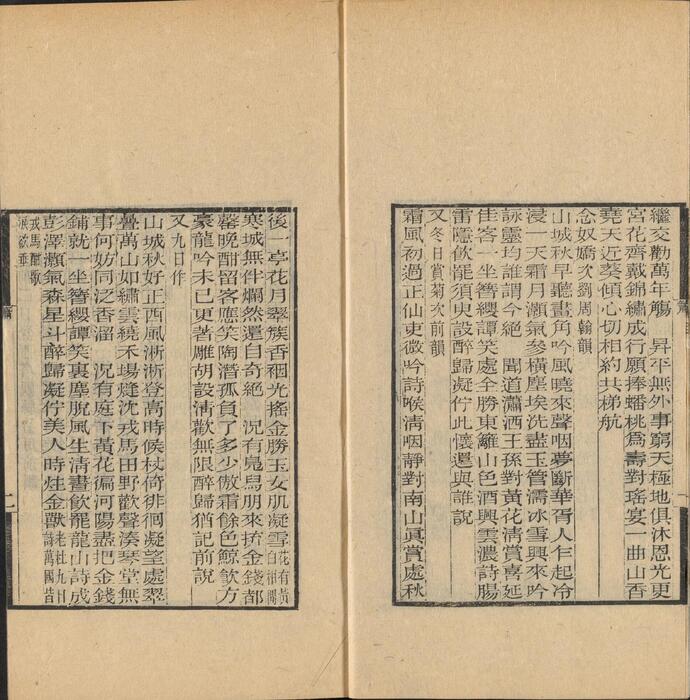 繼交勸萬年觴　昇平無外事窮天極地俱沐恩光更
宮花齊戴錦繡成行願捧蟠桃為壽對瑤宴一曲山香
堯天近葵傾心切相約共梯航
念奴嬌次劉周翰韻
山城秋早聽畫角吟風曉來聲咽夢斷華胥人乍起冷
浸一天霜月灝氣參橫塵埃洗盡玉管濡冰雪興來吟
詠靈均誰謂今絕　聞道瀟洒王孫對黃花清賞喜延
佳客一坐簪纓譚笑處全勝東籬山色酒興雲濃詩腸
雷隱飲罷須臾設醉歸凝佇此懷還與誰說
又冬日賞菊次前韻
霜風初過正仙吏微吟詩喉清咽靜對南山真賞處秋
後一亭花月翠簇香裀光搖金勝玉女肌凝雪花有黃白相間
寒城無伴爛然還自奇絕　況有鳧舄朋來拚金錢都
罄晚酣留客應笑陶潛孤負了多少傲霜餘色鯨飲方
豪龍吟未已更著雕胡設清歡無限醉歸猶記前說
又九日作
山城秋好正西風淅淅登高時候杖倚徘徊凝望處翠
疊萬山如繡雲繞禾場煙沈戎馬田野歡聲湊琴堂無
事何妨同泛香溜　況有庭下黃花徧河陽盡把金錢
鋪就一坐簪纓譚笑裏塵脫風生清晝飲罷龍山詩成
彭澤灝氣森星斗醉歸凝佇美人時炷金獸老杜九日詩萬國皆
戎馬酣歌淚欲垂